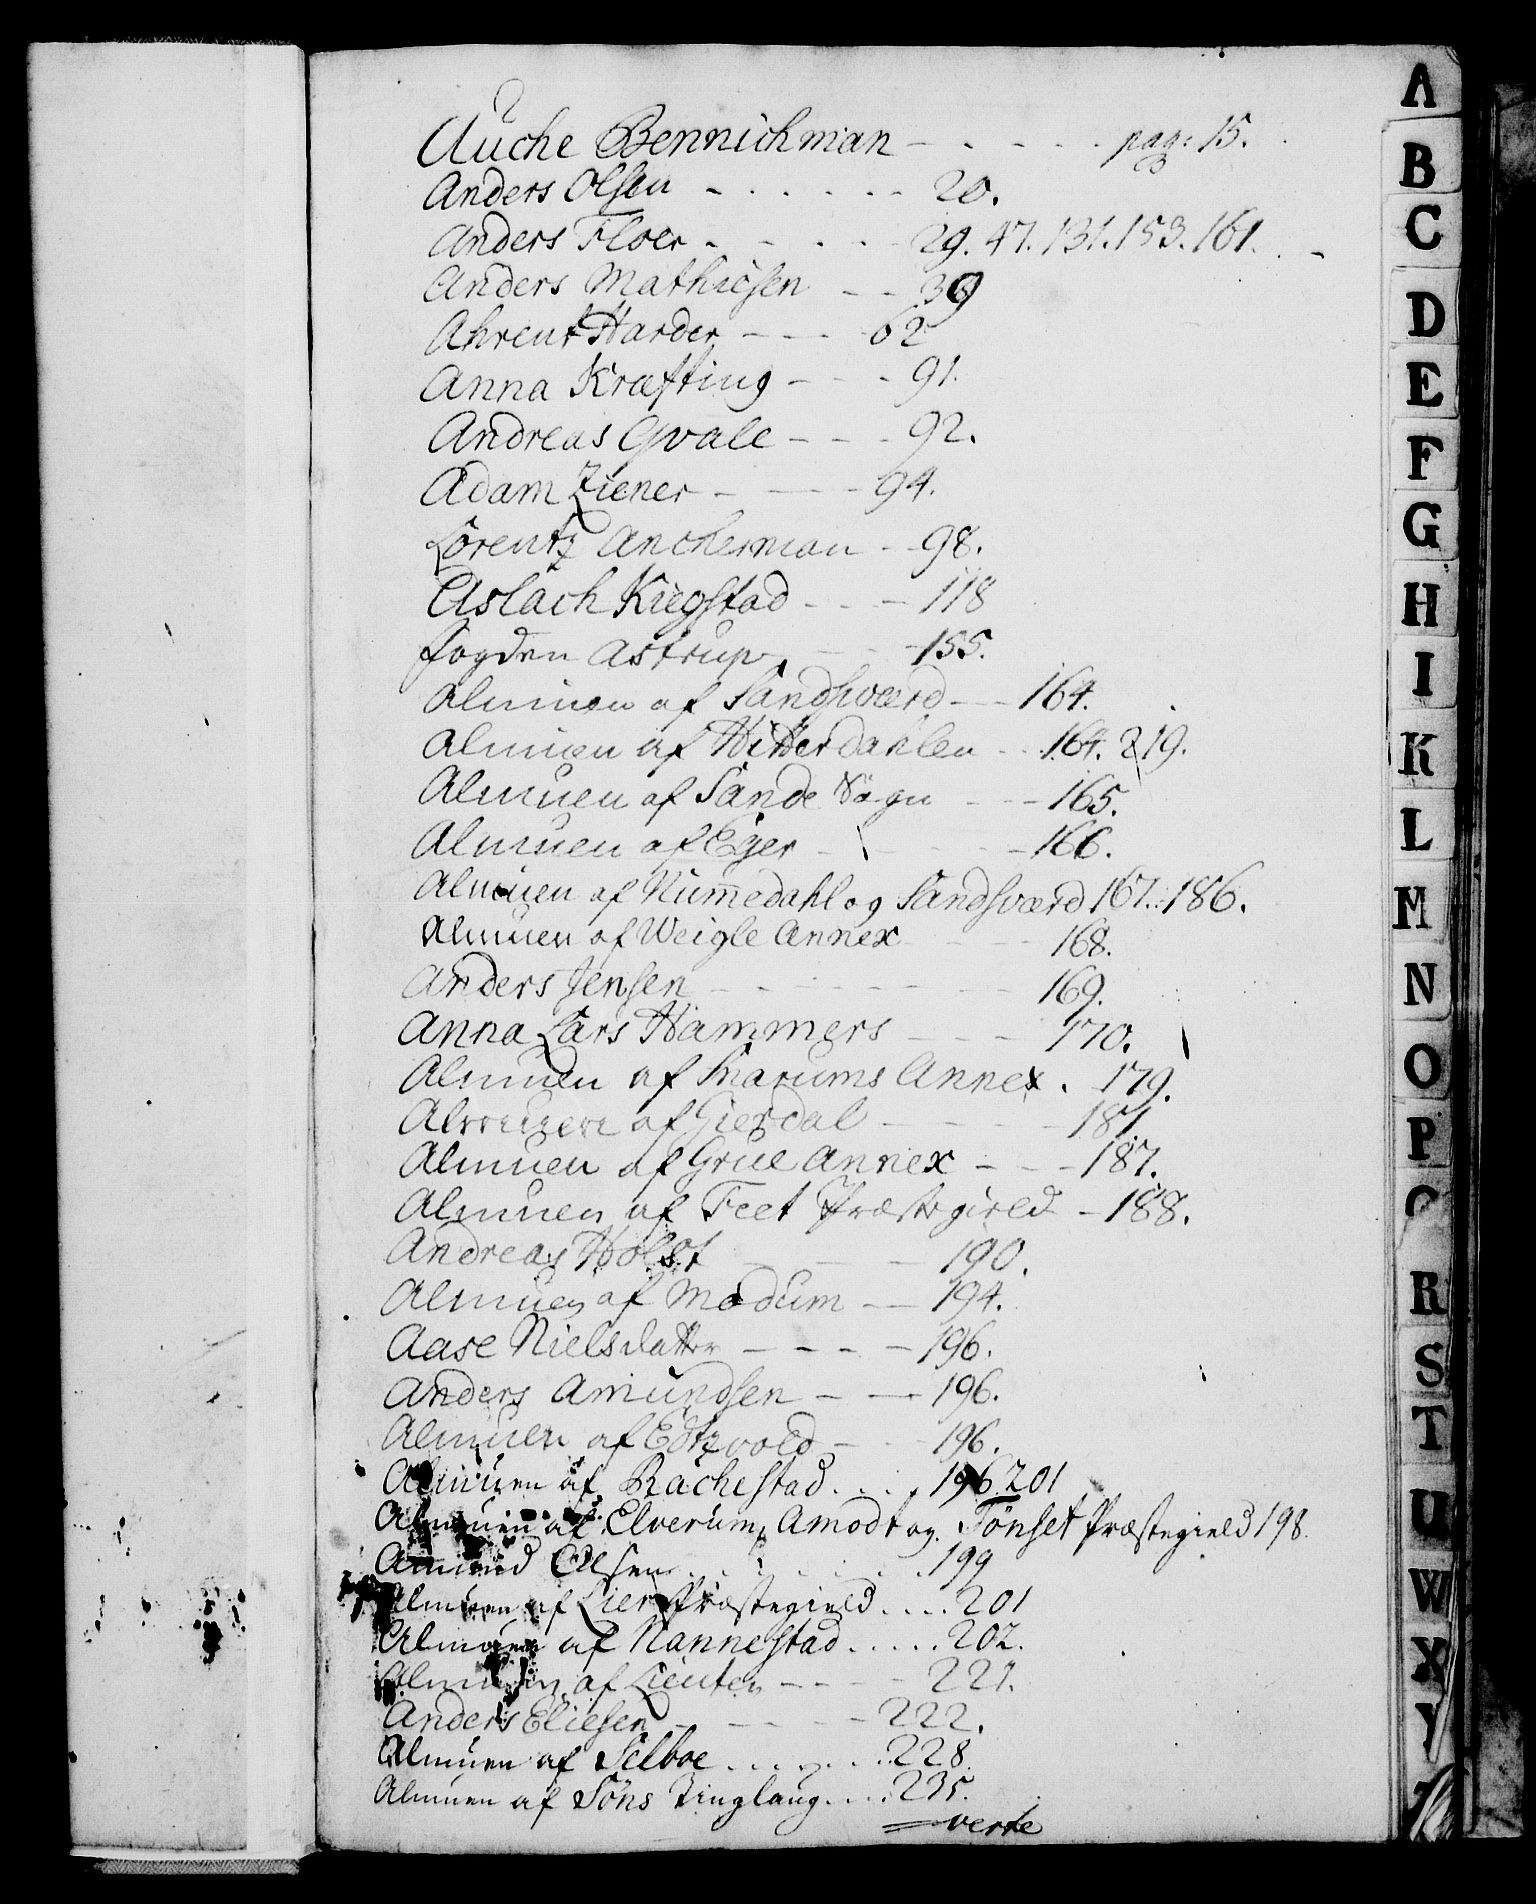 Auche Bennichman - - - - - pag: 15.
Anders Olsen - - - - - - 20.
Anders Floer - - - - 29. 47. 131. 153. 161.
Anders Mathiesen - - 39
Ahrent Harder - - - 62
Anna Kræfting - - - 91.
Andreas Qvale - - - 92.
Adam Ziener - - - 94.
Lorentz Ancherman - - 98.
Aslach Kiegstad - - - 118
fogden Astrup - - 155.
Almuen af Sandsværd - - 164.
Almuen af Hitterdahlen - - 164. 219.
Almuen af Sande Sogn - - - 165.
Almuen af Eger - - - - 166.
Almuen af Nummedahl og Sandsværd 167. 186.
Almuen af Weigle Annex - - - 168.
Anders Jensen - - - - - - 169.
Anna Lars Hammers - - - 170.
Almuen af Snarums Annex. 179.
Almuen af Gierdal - - - - 181
Almuen af Grue Annex - - - 187.
Almuen af Feet Præstegield - 188.
Andreas Holst - - - 190.
Almuen af Modum - - 194.
Aase Nielsdatter - - - - 196.
Anders Amundsen - - - 196.
Almuen af Edtzvold - - - 196.
Almuen af Rachestad . . . . 196. 201
Almuen af Elverum, Amodt og Tönset Præstegield 198.
Amund Olsen . . . . . . . 199
Almuen af Lier Præstegield . . . . 201
Almuen af Nannestad . . . . . 202.
Almuen af Lieuten - - - - 221.
Anders Eliesen - - - - - 222.
Almuen af Selboe . . . . . . 228.
Almuen af Söns Tinglaug . . . . 235.
verte
A
B
C
D
E
F
G
H
I
K
L
M
N
O
P
Q
R
S
T
U
W
X
Y